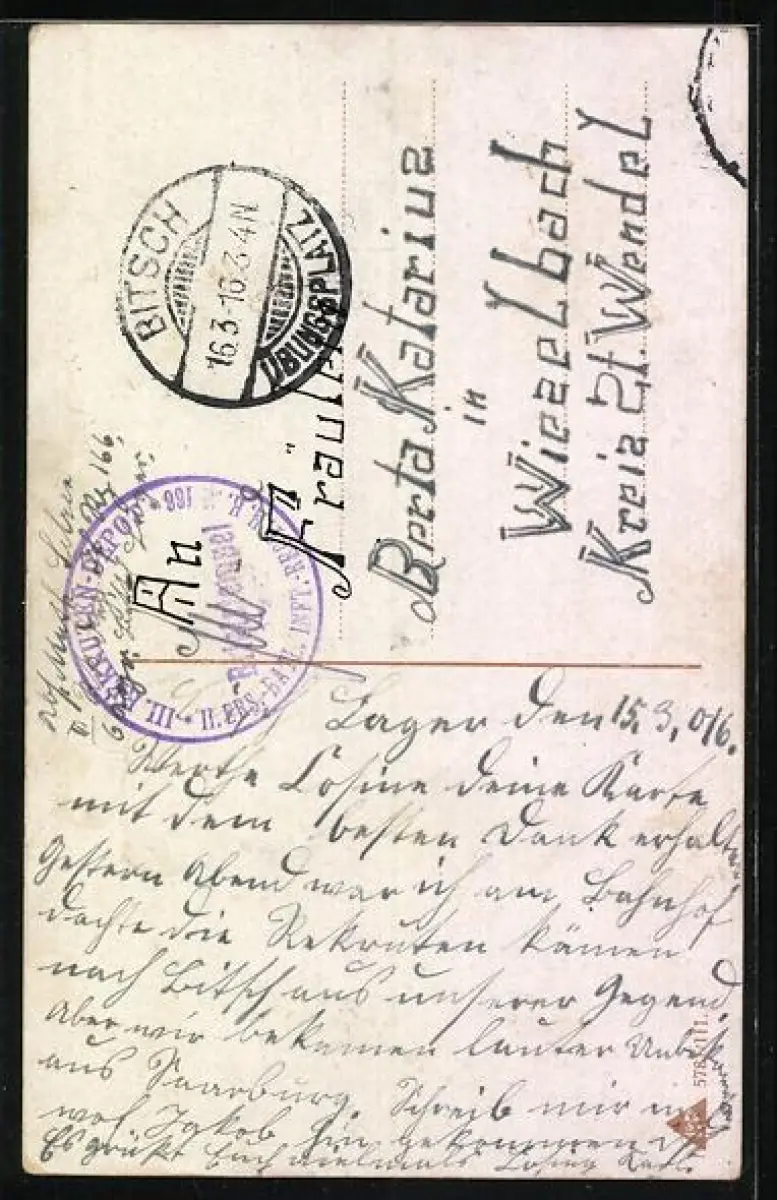 BITSCH
16.3.16.3-4N
ÜBUNGSPLATZ
III. REKRUTEN-DEPOT
II. ERS.-BATL. INFT.-REGT. N.R. 166
An
Fräulein
Berta Katarius
in
Wieselbach
Kreis St. Wendel
Lager den 15.3.016.
Werthe Cosine deine Karte
mit dem besten Dank erhalten
Gestern Abend war ich am Bahnhof
dachte die Rekruten kämen
nach Bitsch aus unserer Gegend.
Aber wir bekamen lauter
aus Saarburg. Schreib mir
wo Jakob hin gekommen ist
Es grüßt Euch vielmals Cosing Karl.